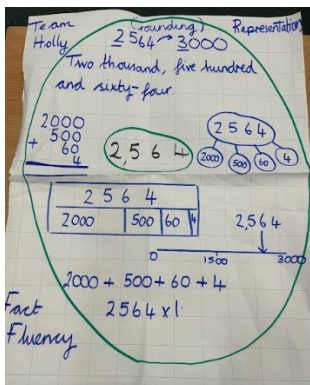 Team Holly
(rounding)
2564 → 3000
Representation
Two thousand, five hundred
and sixty-four
2000
+ 500
60
4
2,564
2564
2000 500 60 4
2 5 6 4
2000 500 60 4
2,564
0 1500 3000
2000 + 500 + 60 + 4
2564 x 1
Fact
Fluency